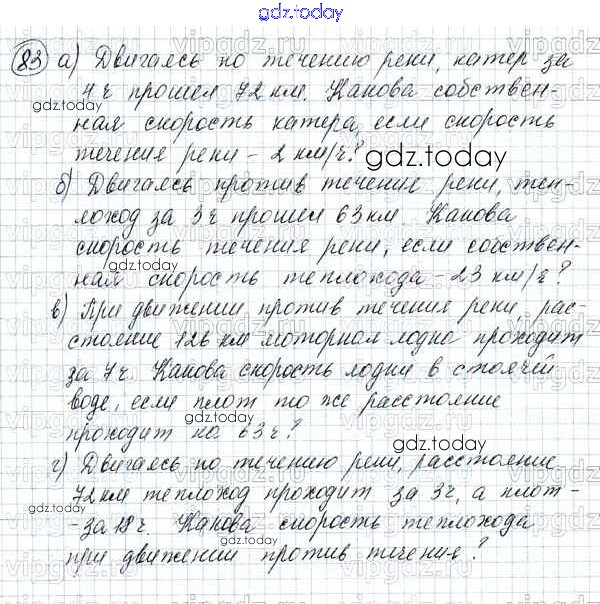 gdz.today
83 а) Двигаясь по течению реки, катер за
4 ч прошел 72 км. Какова собствен-
gdz.today
ная скорость катера, если скорость
течения реки - 2 км/ч?
gdz.today
б) Двигаясь против течение реки, теп-
лоход за 3ч прошел 63 км. Какова
скорость течения реки, если собствен-
gdz.today
ная скорость теплохода - 23 км/ч?
в) При движении против течения реки, рас-
стояние 126 км моторная лодка проходит
за 7ч. Какова скорость лодки в стоячей
воде, если плот то же расстояние
проходит на 63ч?
gdz.today
г) Двигаясь по течению реки, расстояние
72км теплоход проходит за 3ч, а плот-
gdz.today
-за 18ч. Какова скорость теплохода
при движении против течения?
gdz.today